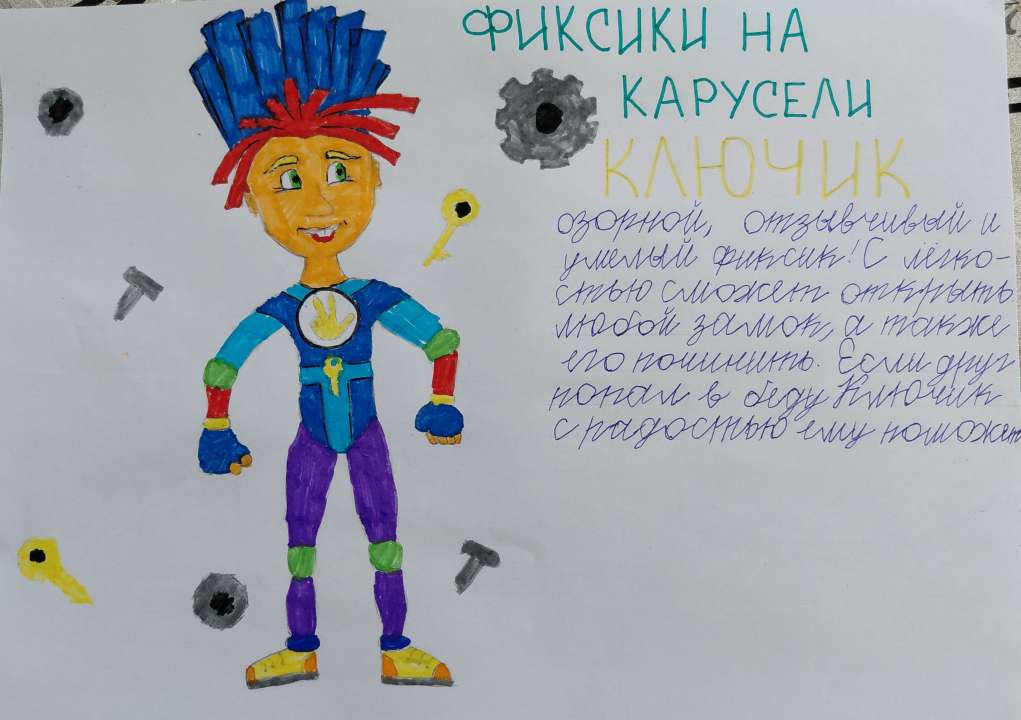 ФИКСИКИ НА
КАРУСЕЛИ
КЛЮЧИК
озорной, отзывчивый и
умелый фиксик! С лёгко-
стью сможет открыть
любой замок, а также
его починить. Если друг
попал в беду Ключик
с радостью ему поможет